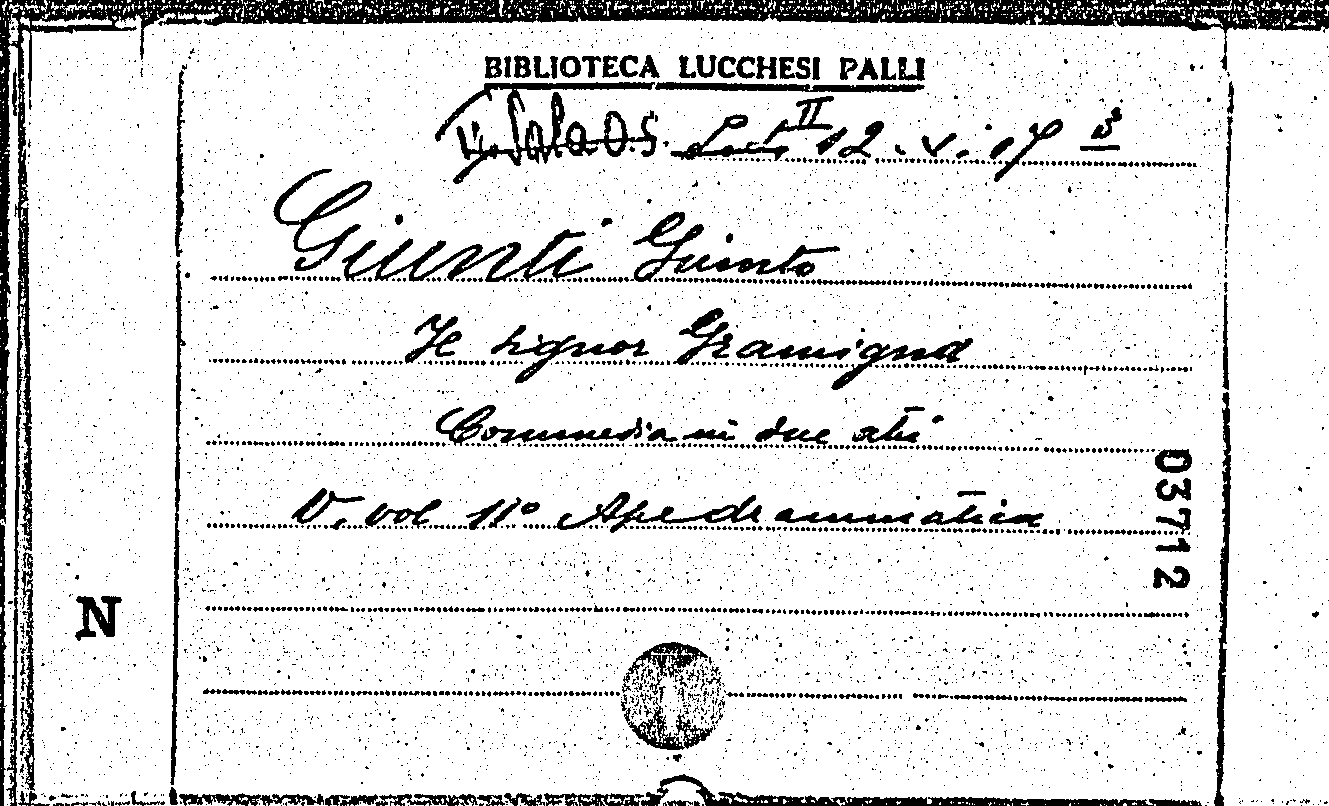 BIBLIOTECA LUCCHESI PALLI
II 12. V. 17
Giunti Giunto
Il signor Gramigna
Commedia in due atti
V. vol 11° Ape drammatica
03712
N